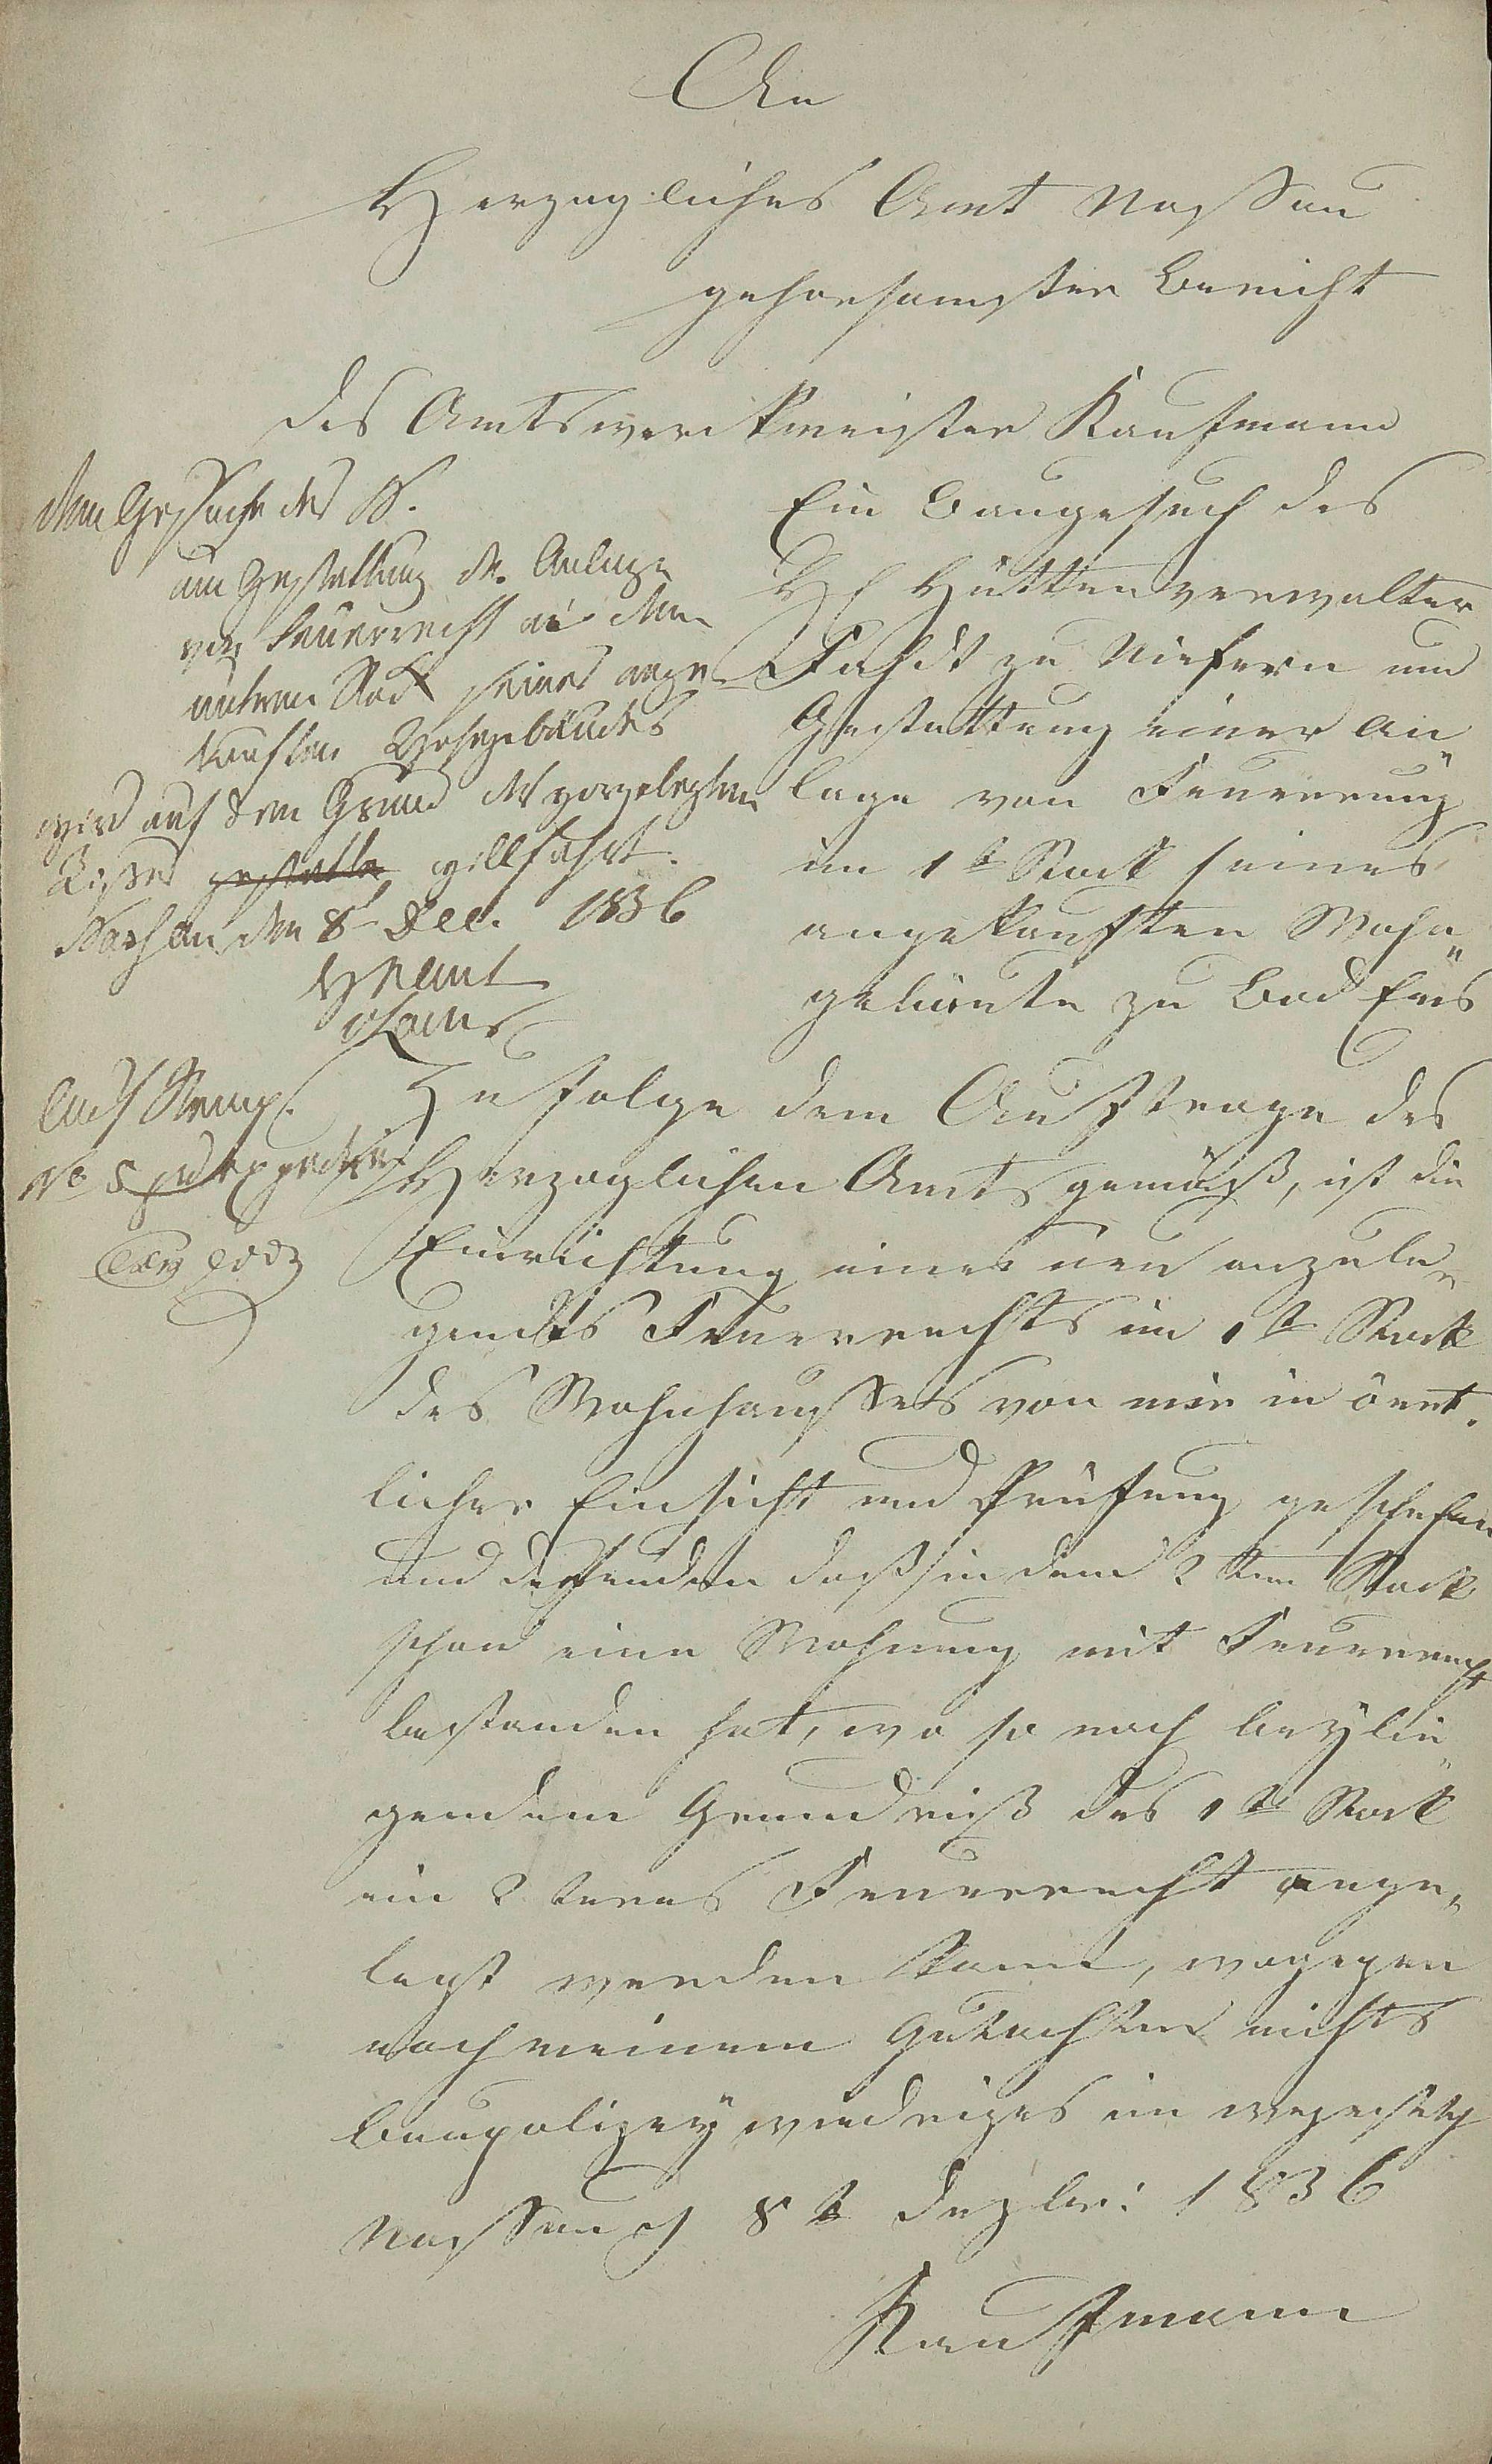 An
Herzogliches Amt Nassau
gehorsamster Bericht
des Amtswerkmeister Kaufmann
Ein Baugesuch des
H Hüttenverwalter
zu Niefern um
Gestattung einer An„
lage von Feuerung
im 1t Stock seines
angekauften Wohn„
gebäute zu Bad Ems
Dem Gesuche des
um Gestattung der Anlage
von Feuerrecht in dem
untern Stock seines ange-
kauften Wohngebäudes
wird auf den Grund des vorgelegten
Risses gestattet willfahrt.
Nassau den 8t Dec. 1836
HNamt
Zufolge dem Auftrage des
Herzoglichen Amts gemäß, ist die
Einrichtung eines neu anzule„
gendes Feuerrechts im 1t Stock
des Wohnhausses von mir in oert„
licher Einsicht und Prüfung geschehen
und befunden daß in dem 2ten Stock
schon eine Wohnung mit Feuerrecht
bestanden hat, wo so nach beylie„
gendem Grundriß des 1t Stock
ein 2teres Feuerrecht ange„
legt werden kann, wogegen
nach meinem Gutachten nichts
baupolizey wiedriges im
Nassau d 8t Dezbr: 1836
Kaufmann